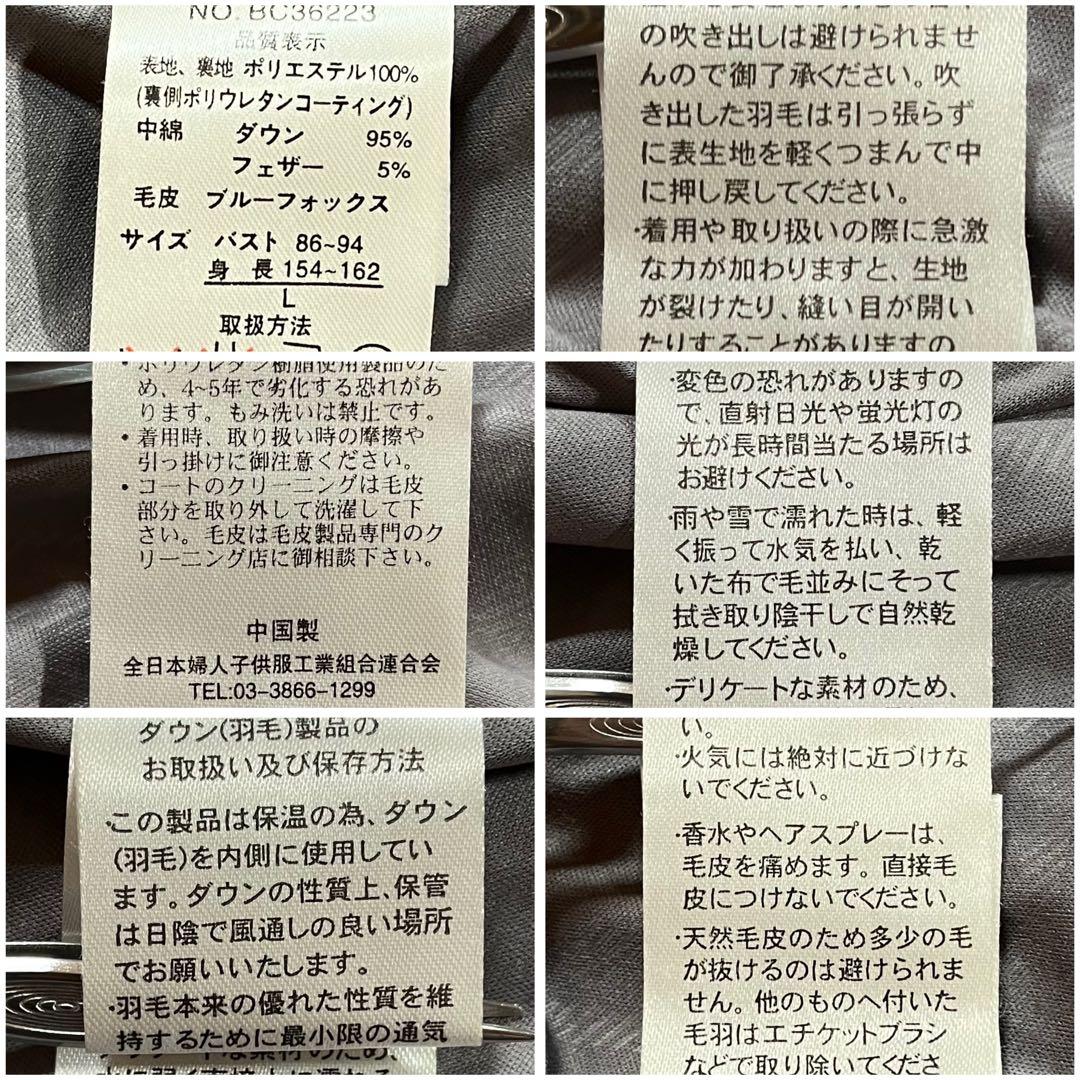 NO. BC36223
品質表示
表地、裏地 ポリエステル100%
(裏側ポリウレタンコーティング)
中綿 ダウン 95%
フェザー 5%
毛皮 ブルーフォックス
サイズ バスト 86~94
身長 154~162
L
取扱方法
の吹き出しは避けられませ
んので御了承ください。吹
き出した羽毛は引っ張らず
に表生地を軽くつまんで中
に押し戻してください。
・着用や取り扱いの際に急激
な力が加わりますと、生地
が裂けたり、縫い目が開い
たりすることがありますの
・ポリウレタン樹脂使用製品のた
め、4~5年で劣化する恐れがあ
ります。もみ洗いは禁止です。
・着用時、取り扱い時の摩擦や
引っ掛けに御注意ください。
・コートのクリーニングは毛皮
部分を取り外して洗濯して下
さい。毛皮は毛皮製品専門のク
リーニング店に御相談下さい。
中国製
全日本婦人子供服工業組合連合会
TEL:03-3866-1299
・変色の恐れがありますの
で、直射日光や蛍光灯の
光が長時間当たる場所は
お避けください。
・雨や雪で濡れた時は、軽
く振って水気を払い、乾
いた布で毛並みにそって
拭き取り陰干しで自然乾
燥してください。
・デリケートな素材のため、
ダウン(羽毛)製品の
お取扱い及び保存方法
・この製品は保温の為、ダウン
(羽毛)を内側に使用してい
ます。ダウンの性質上、保管
は日陰で風通しの良い場所
でお願いいたします。
・羽毛本来の優れた性質を維
持するために最小限の通気
い。
・火気には絶対に近づけな
いでください。
・香水やヘアスプレーは、
毛皮を痛めます。直接毛
皮につけないでください。
・天然毛皮のため多少の毛
が抜けるのは避けられま
せん。他のものへ付いた
毛羽はエチケットブラシ
などで取り除いてくださ